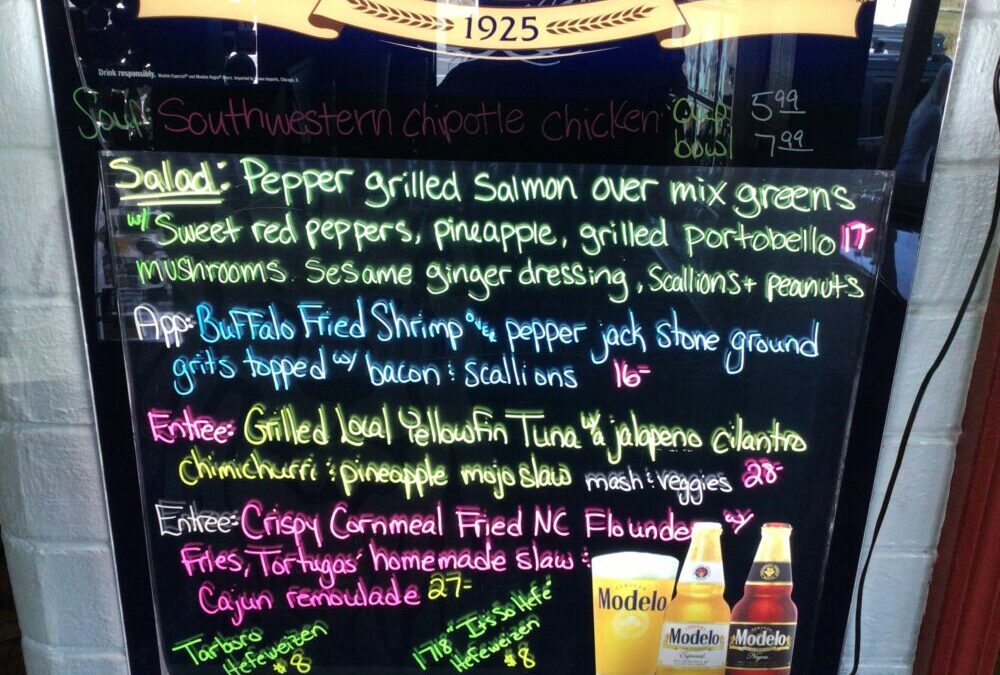 1925
Drink responsibly.
Soup: Southwestern chipotle chicken Cup 5.99
bowl 7.99
Salad: Pepper grilled Salmon over mix greens
w/ Sweet red peppers, pineapple, grilled portobello 17-
mushrooms. Sesame ginger dressing, Scallions + peanuts
App: Buffalo Fried Shrimp over pepper jack stone ground
grits topped w/ bacon & scallions 16-
Entree: Grilled Local Yellowfin Tuna w/ a jalapeno cilantro
chimichurri & pineapple mojo slaw mash & veggies 28-
Entree: Crispy Cornmeal Fried NC Flounder w/
Fries, Tortugas' homemade slaw &
Cajun remoulade 27-
Tarboro
Hefeweizen
$8
1718 "It's So Hefe"
Hefeweizen
$8
Modelo
Modelo
Especial
Modelo
Negra